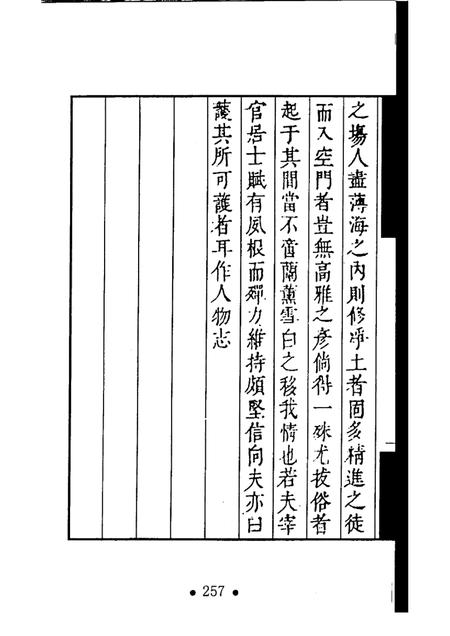 之場人盡薄海之內則修淨土者固多精進之徒
而入空門者豈無高雅之彥倘得一殊尤拔俗者
起于其間當不啻蘭薰雪白之移我情也若夫宰
官居士賦有夙根而殫力維持頗堅信向夫亦曰
護其所可護者耳作人物志
• 257 •